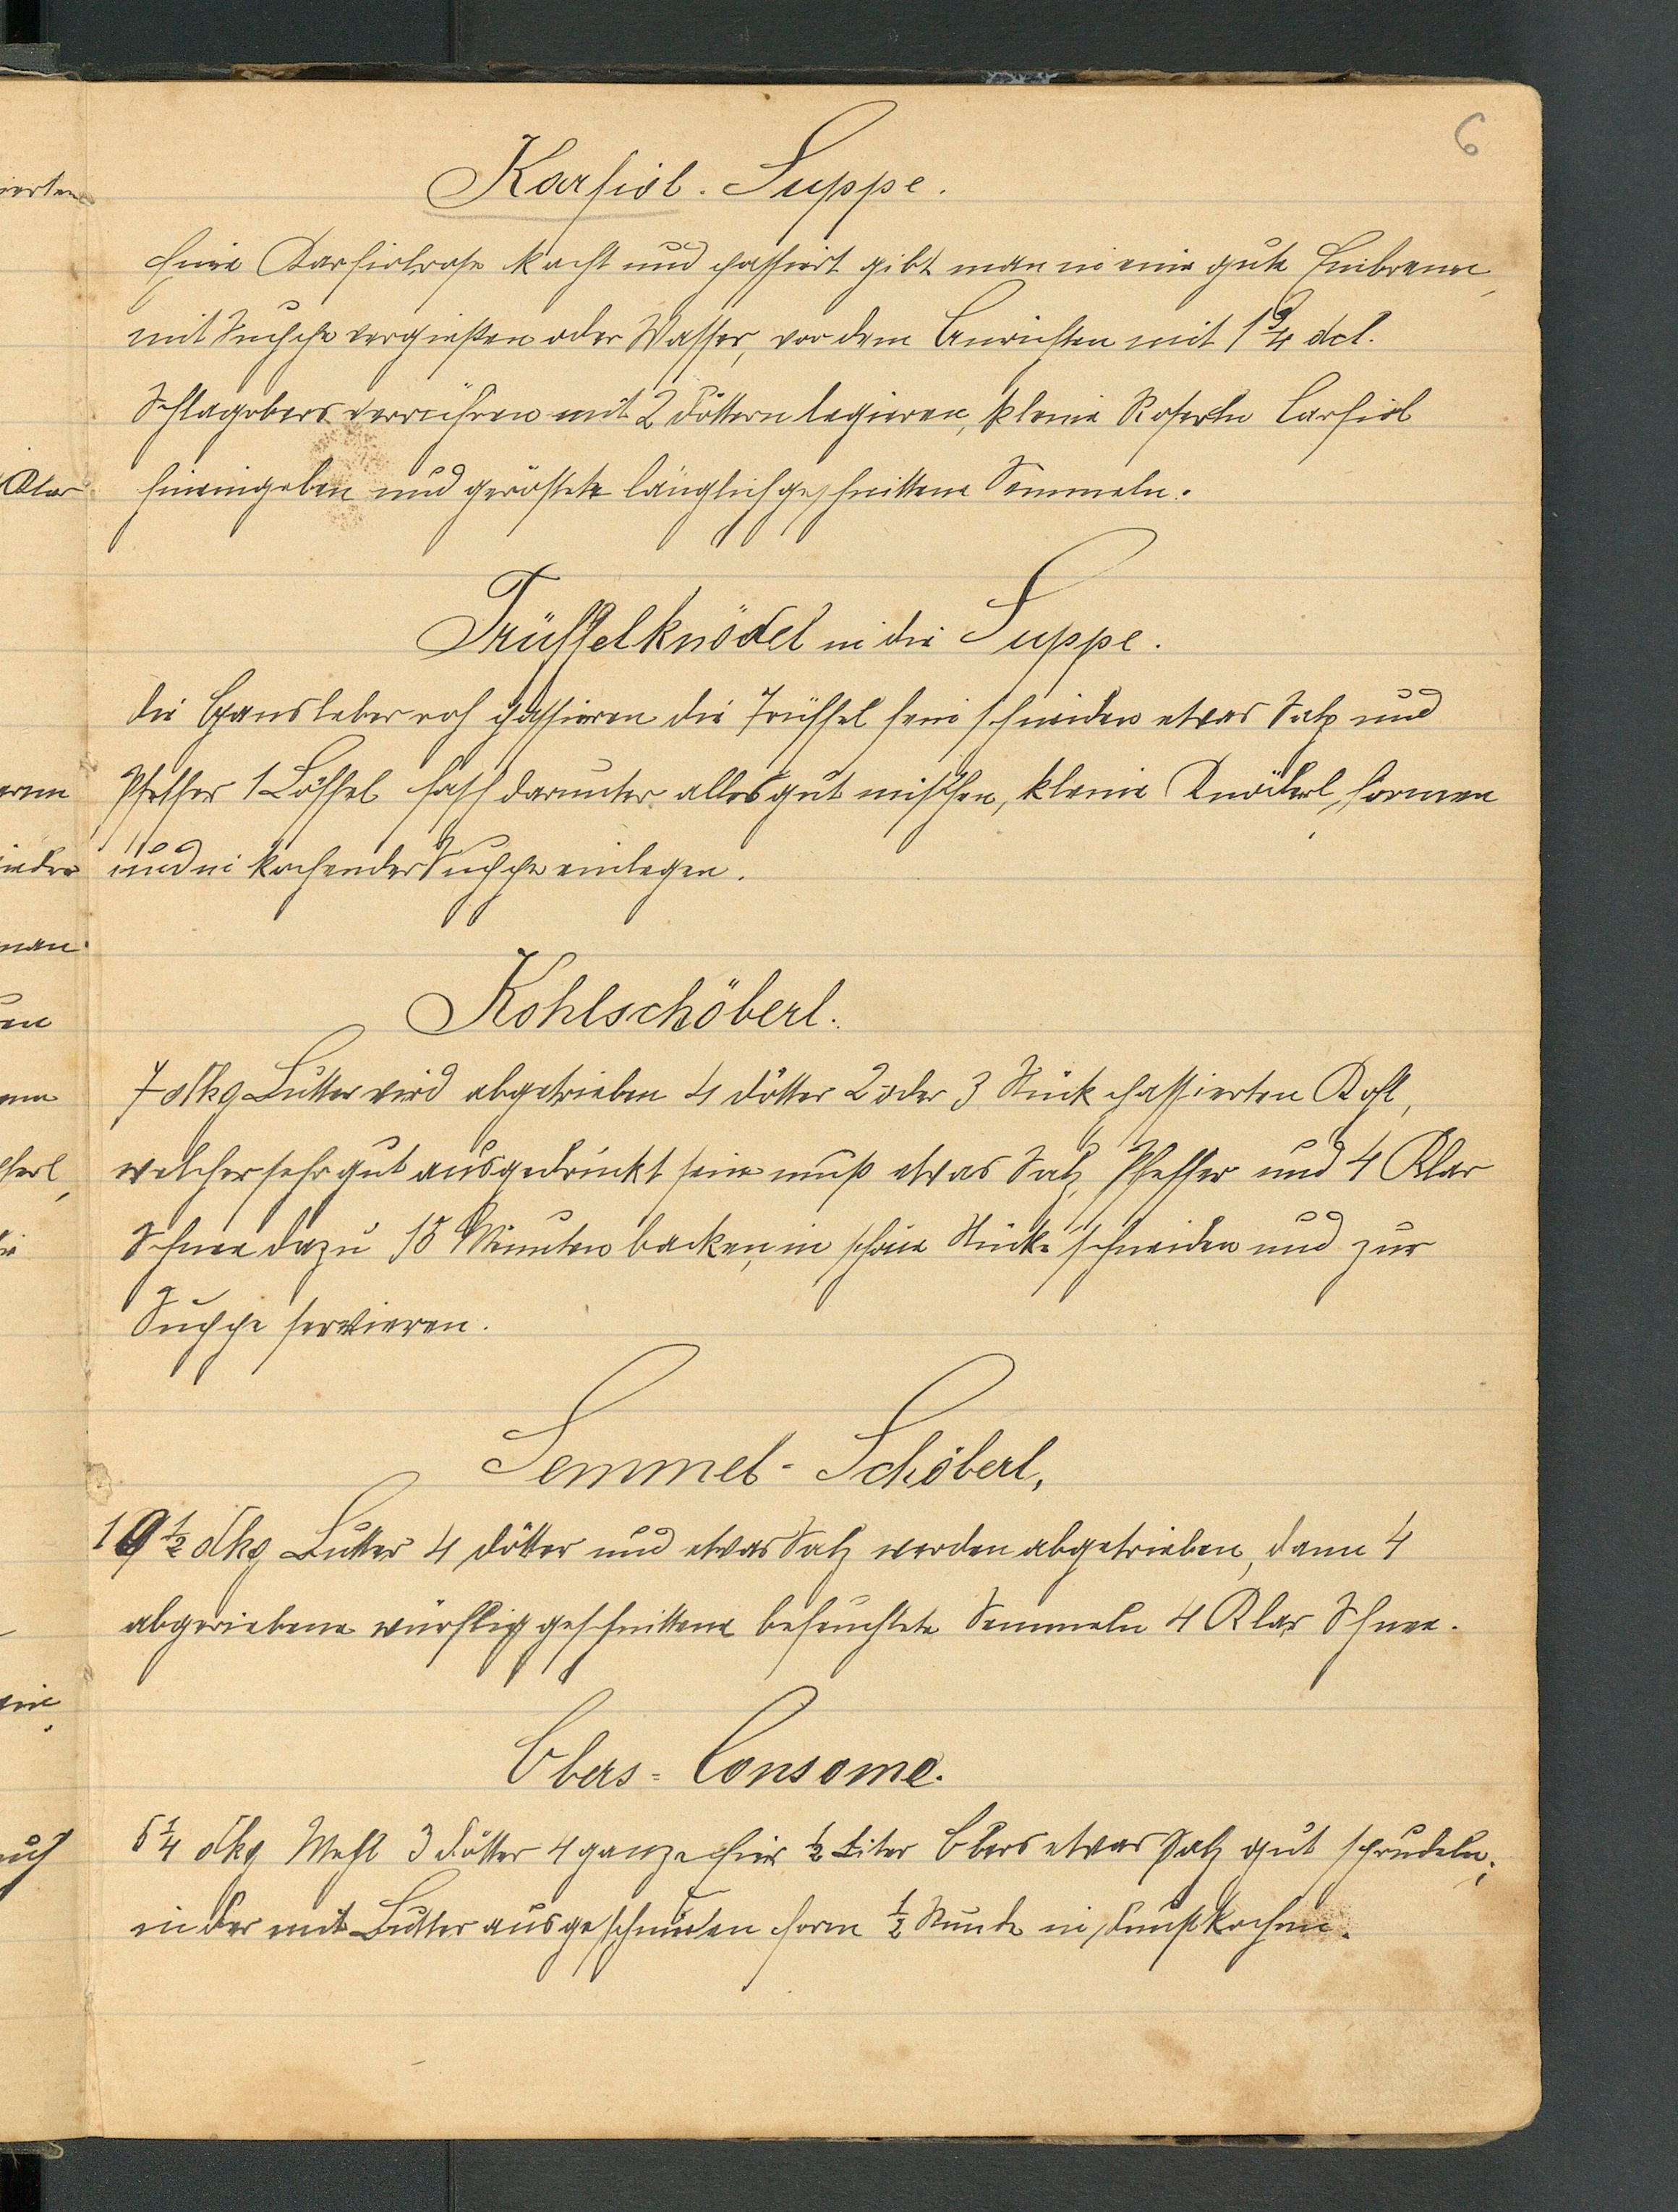 6
Karfiol. Suppe.
Eine Karfiolrose kocht und passiert gibt man in eine gute Einbrenn,
mit Suppe vergießen oder Wasser, vor dem Anrichten mit 1 3/4 dcl.
Schlagobers verrühren mit 2 Dottern legieren, kleine Roserln Carfiol
hineingeben und geröstete länglichgeschnittene Semmeln.
Trüffelknödel in die Suppe.
Die Gansleber roh passieren die Trüffel fein schneiden etwas Salz und
Pfeffer 1 Löffel Fasch darunter alles gut mischen, kleine Knöderl, formen
und in kochender Suppe einlegen.
Kohlschöberl.
7 dkg Butter wird abgetrieben 4 Dötter 2 oder 3 Stück passierten Kohl,
welcher sehr gut ausgedrückt sein muß etwas Salz, Pfeffer und 4 Klar
Schnee dazu 15 Minuten backen, in schöne Stücke schneiden und zur
Suppe servieren.
Semmel-Schöberl,
1/2 dkg Butter 4 Dötter und etwas Salz werden abgetrieben, dann 4
abgeriebene würflig geschnittene befeuchtete Semmeln 4 Klar Schnee.
Obers=Consome.
5 1/4 dkg Mehl 3 Dotter 4 ganze Eier 1/2 Liter Obers etwas Salz gut sprudeln,
in der mit Butter ausgeschmierten Form 1/2 Stunde in Dunst kochen.
Klar
man